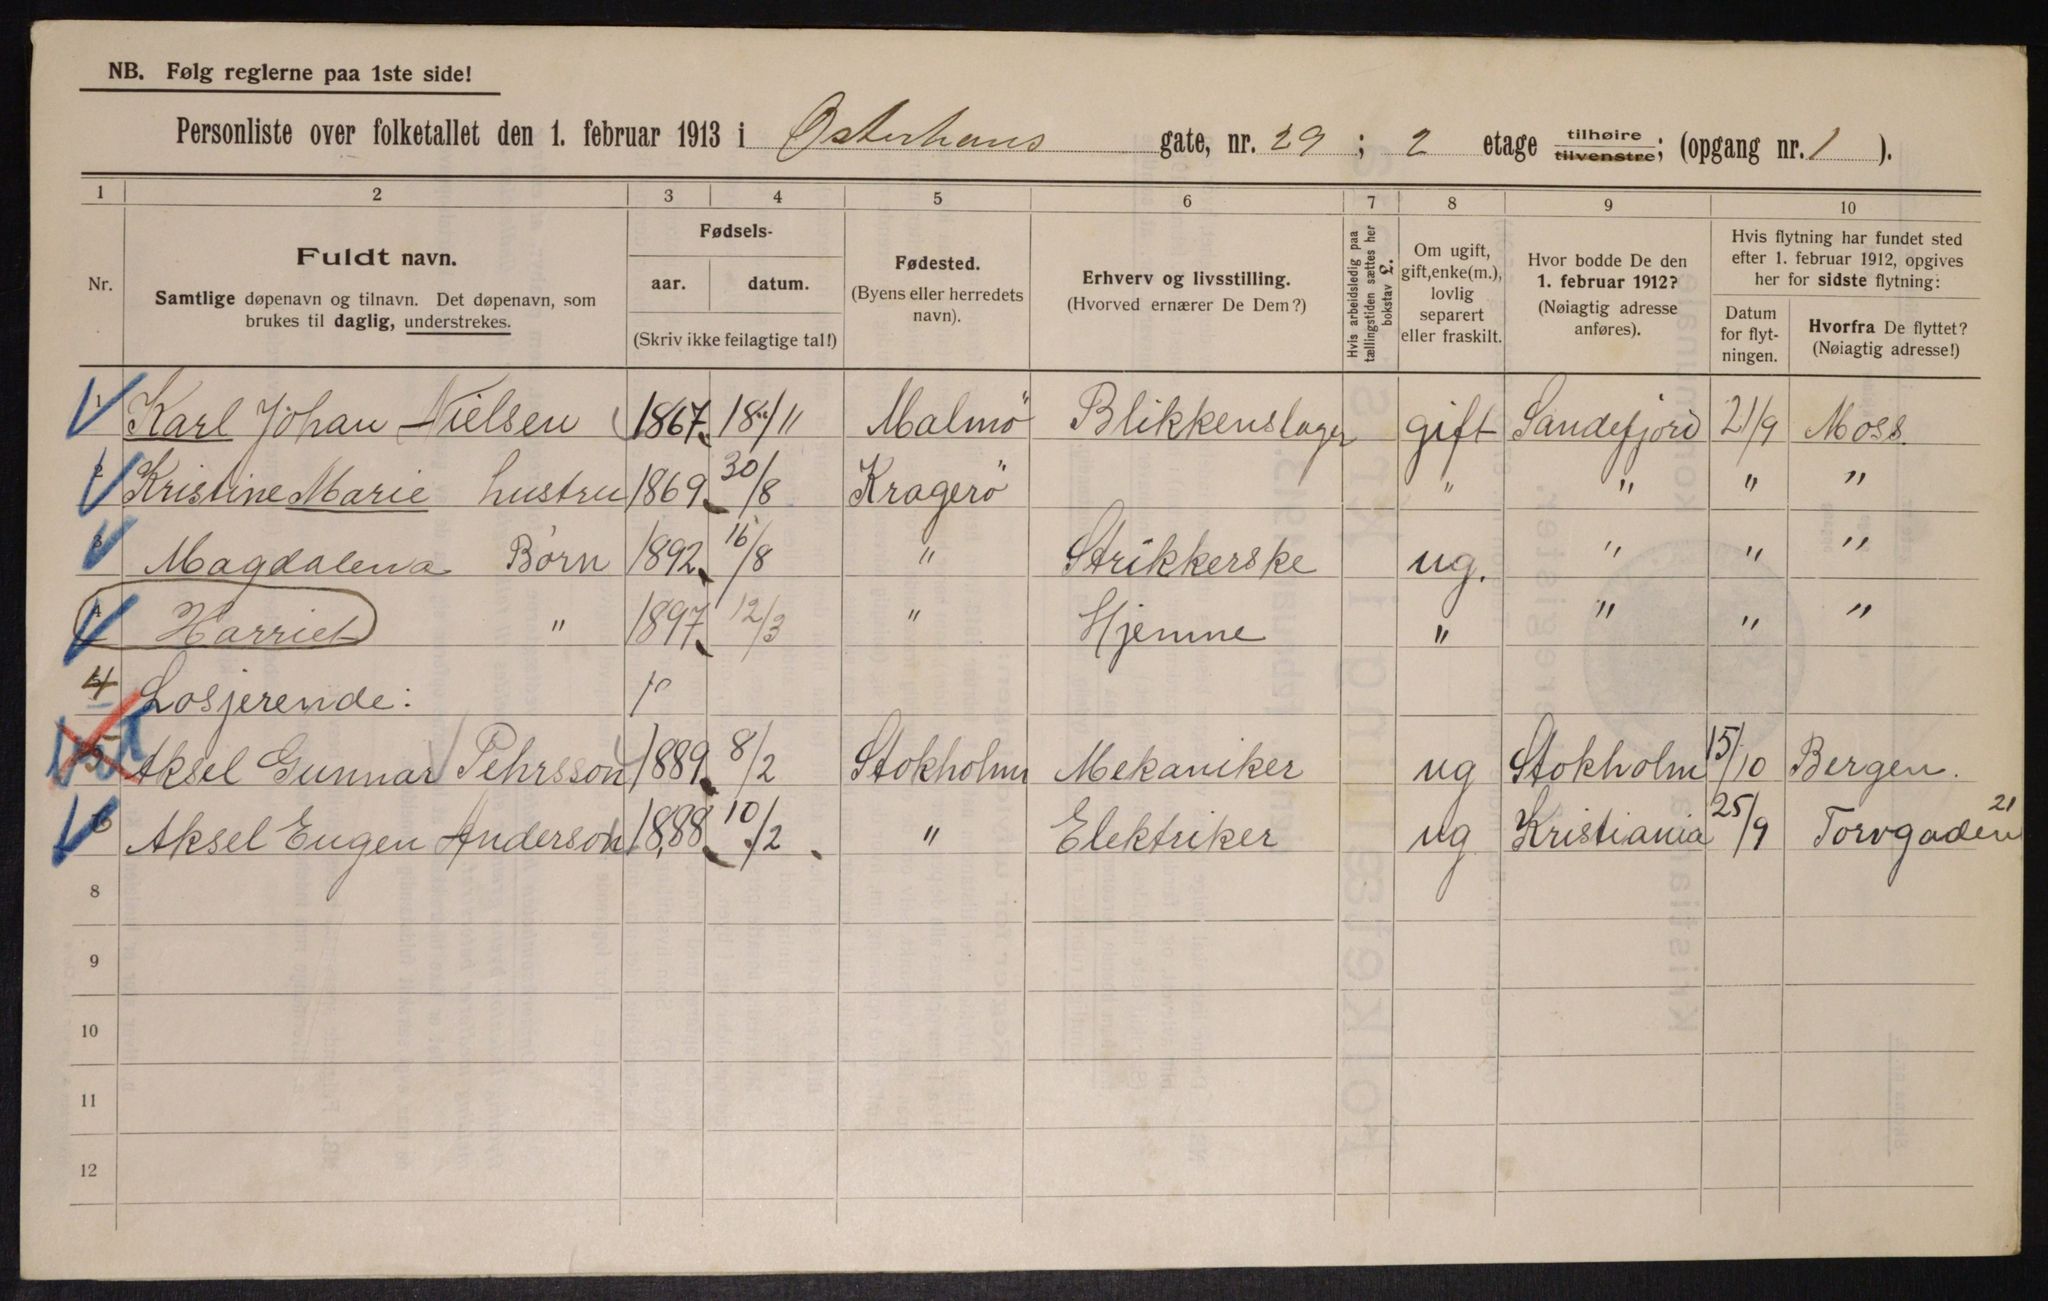 NB. Følg reglerne paa 1ste side!
Personliste over folketallet den 1. februar 1913 i Østerhaus gate, nr. 29 ; 2 etage tilhøire tilvenstre; (opgang nr. 1 ).
1 2 3 4 5 6 7 8 9 10
Nr.
Fuldt navn.
Samtlige døpenavn og tilnavn. Det døpenavn, som
brukes til daglig, understrekes.
Fødsels-
aar. datum.
(Skriv ikke feilagtige tal!)
Fødested.
(Byens eller herredets
navn).
Erhverv og livsstilling.
(Hvorved ernærer De Dem?)
Hvis arbeidsledig paa
tællingstiden sættes her
bokstav L.
Om ugift,
gift, enke(m.),
lovlig
separert
eller fraskilt.
Hvor bodde De den
1. februar 1912?
(Nøiagtig adresse
anføres).
Hvis flytning har fundet sted
efter 1. februar 1912, opgives
her for sidste flytning:
Datum
for flyt-
ningen.
Hvorfra De flyttet?
(Nøiagtig adresse!)
1 Karl Johan Nielsen 1867 18/11 Malmö Blikkenslager gift Sandefjord 21/9 Moss.
2 Kristine Marie hustru 1869 30/8 Kragerö " " " "
3 Magdalena Børn 1892 16/8 " Strikkerske ug. " " "
4 Harriet " 1897 12/3 " Hjemme " " " "
4 Losjerende:
5 Aksel Gunnar Pehrsson 1889 8/2 Stokholm Mekaniker ug Stokholm 15/10 Bergen.
6 Aksel Eugen Anderson 1888 10/2 " Elektriker ug Kristiania 25/9 Torvgaden 21
8
9
10
11
12